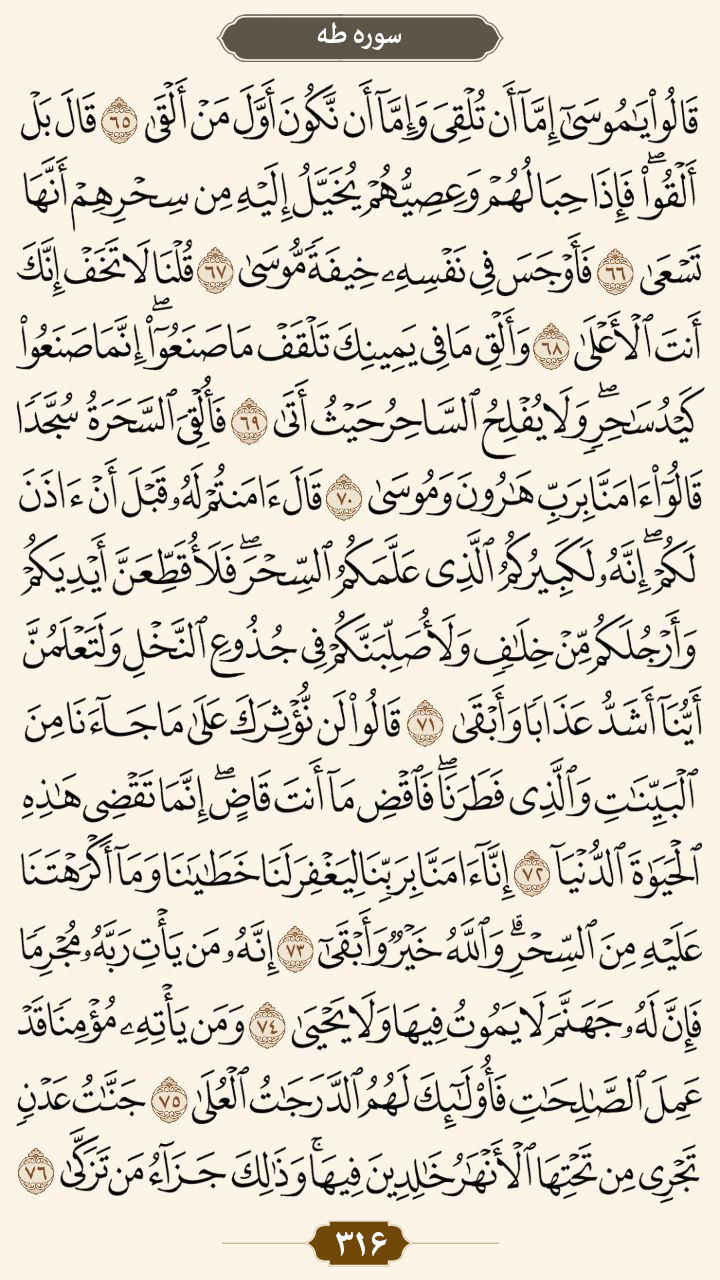 سوره طه
قَالُوا۟ يَـٰمُوسَىٰٓ إِمَّآ أَن تُلْقِىَ وَإِمَّآ أَن نَّكُونَ أَوَّلَ مَنْ أَلْقَىٰ ٦٥ قَالَ بَلْ
أَلْقُوا۟ۖ فَإِذَا حِبَالُهُمْ وَعِصِيُّهُمْ يُخَيَّلُ إِلَيْهِ مِن سِحْرِهِمْ أَنَّهَا
تَسْعَىٰ ٦٦ فَأَوْجَسَ فِى نَفْسِهِۦ خِيفَةً مُّوسَىٰ ٦٧ قُلْنَا لَا تَخَفْ إِنَّكَ
أَنتَ ٱلْأَعْلَىٰ ٦٨ وَأَلْقِ مَا فِى يَمِينِكَ تَلْقَفْ مَا صَنَعُوٓا۟ۖ إِنَّمَا صَنَعُوا۟
كَيْدُ سَـٰحِرٍۖ وَلَا يُفْلِحُ ٱلسَّاحِرُ حَيْثُ أَتَىٰ ٦٩ فَأُلْقِىَ ٱلسَّحَرَةُ سُجَّدًا
قَالُوٓا۟ ءَامَنَّا بِرَبِّ هَـٰرُونَ وَمُوسَىٰ ٧٠ قَالَ ءَامَنتُمْ لَهُۥ قَبْلَ أَنْ ءَاذَنَ
لَكُمْۖ إِنَّهُۥ لَكَبِيرُكُمُ ٱلَّذِى عَلَّمَكُمُ ٱلسِّحْرَۖ فَلَأُقَطِّعَنَّ أَيْدِيَكُمْ
وَأَرْجُلَكُم مِّنْ خِلَـٰفٍ وَلَأُصَلِّبَنَّكُمْ فِى جُذُوعِ ٱلنَّخْلِ وَلَتَعْلَمُنَّ
أَيُّنَآ أَشَدُّ عَذَابًا وَأَبْقَىٰ ٧١ قَالُوا۟ لَن نُّؤْثِرَكَ عَلَىٰ مَا جَآءَنَا مِنَ
ٱلْبَيِّنَـٰتِ وَٱلَّذِى فَطَرَنَاۖ فَٱقْضِ مَآ أَنتَ قَاضٍۖ إِنَّمَا تَقْضِى هَـٰذِهِ
ٱلْحَيَوٰةَ ٱلدُّنْيَآ ٧٢ إِنَّآ ءَامَنَّا بِرَبِّنَا لِيَغْفِرَ لَنَا خَطَـٰيَـٰنَا وَمَآ أَكْرَهْتَنَا
عَلَيْهِ مِنَ ٱلسِّحْرِۗ وَٱللَّهُ خَيْرٌ وَأَبْقَىٰٓ ٧٣ إِنَّهُۥ مَن يَأْتِ رَبَّهُۥ مُجْرِمًا
فَإِنَّ لَهُۥ جَهَنَّمَ لَا يَمُوتُ فِيهَا وَلَا يَحْيَىٰ ٧٤ وَمَن يَأْتِهِۦ مُؤْمِنًا قَدْ
عَمِلَ ٱلصَّـٰلِحَـٰتِ فَأُو۟لَـٰٓئِكَ لَهُمُ ٱلدَّرَجَـٰتُ ٱلْعُلَىٰ ٧٥ جَنَّـٰتُ عَدْنٍ
تَجْرِى مِن تَحْتِهَا ٱلْأَنْهَـٰرُ خَـٰلِدِينَ فِيهَاۚ وَذَٰلِكَ جَزَآءُ مَن تَزَكَّىٰ ٧٦
۳۱۶